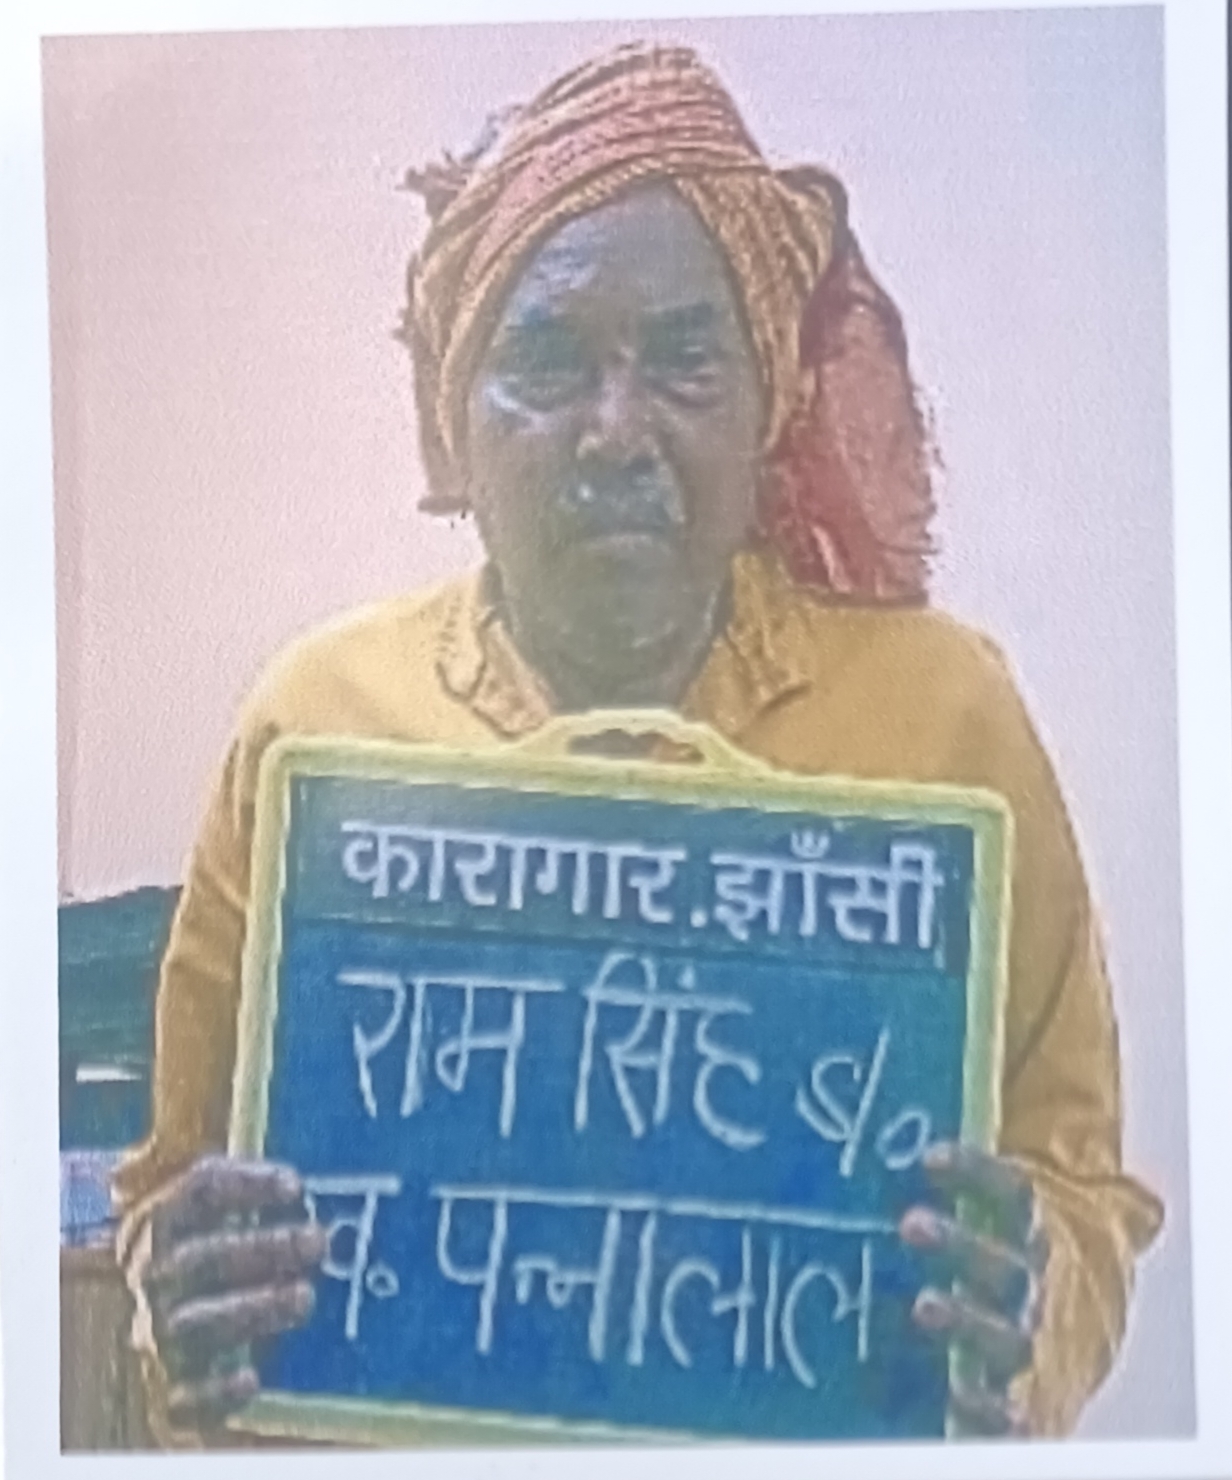 कारागार.झाँसी
राम सिंह S/०
स्व. पन्नालाल